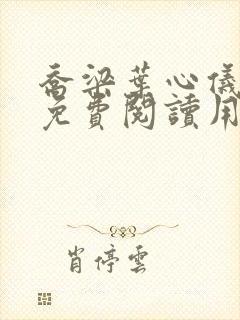 喬梁葉心儀
免費閱讀用
肖停雲